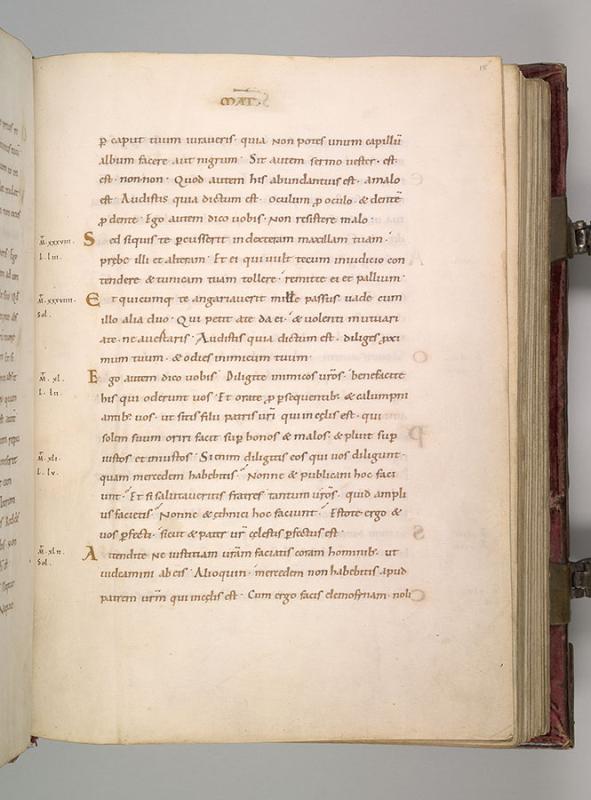 MAT
ꝑ caput tuum iuraueris · quia non potes unum capillū
album facere aut nigrum · Sit autem sermo uester · est
est · non non · Quod autem his abundantius est · a malo
est · Audistis quia dictum est · oculum ꝓ oculo · & dentē
ꝓ dente · Ego autem dico uobis · Non resistere malo ·
M̄. xxxviii. Sed siquis te ꝑcusserit in dexteram maxillam tuam ·
L. liii. prebe illi et alteram · Et ei qui uult tecum in iudicio con
tendere & tunicam tuam tollere · remitte ei et pallium ·
M̄. xxxviiii. Et quicumq; te angariauerit mille passus uade cum
Sol. illo alia duo · Qui petit a te da ei · & uolenti mutuari
a te · ne auertaris · Audistis quia dictum est · diliges ꝓxi
mum tuum · & odies inimicum tuum ·
M̄. xl. Ego autem dico uobis · Diligite inimicos ur̄os · benefacite
L. lii. his qui oderunt uos · Et orate ꝓ ꝑsequentib; & calumpni
antib; uos · ut sitis filii patris ur̄i qui in cęlis est · qui
solem suum oriri facit sup̄ bonos & malos · & pluit sup̄
M̄. xli. iustos et iniustos · Si enim diligitis eos qui uos diligunt ·
L. lv. quam mercedem habebitis · Nonne & publicani hoc faci
unt · Et si salutaueritis fratres tantum ur̄os · quid ampli
us facietis · Nonne & ethnici hoc faciunt · Estote ergo &
uos ꝑfecti · sicut & pater ur̄ cęlestis ꝑfectus est ·
M̄. xlii. Attendite ne iustitiam ur̄am faciatis coram hominib; ut
Sol. uideamini ab eis · Alioquin · mercedem non habebitis apud
patrem ur̄m qui in cęlis est · Cum ergo facis elemosynam · noli